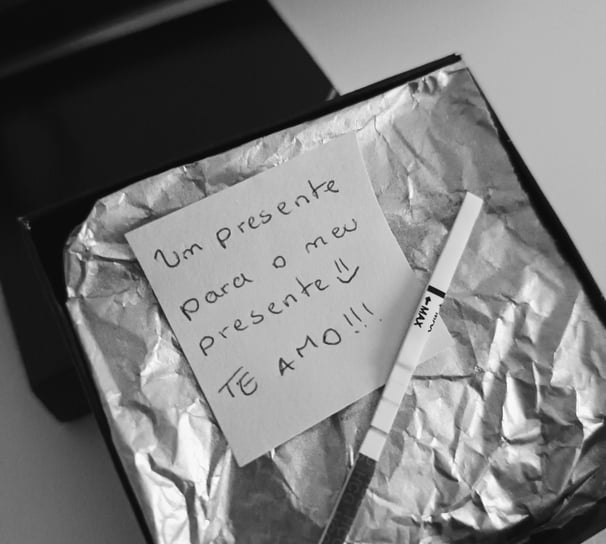 Um presente
para o meu
presente!!
TE AMO!!!
← MAX